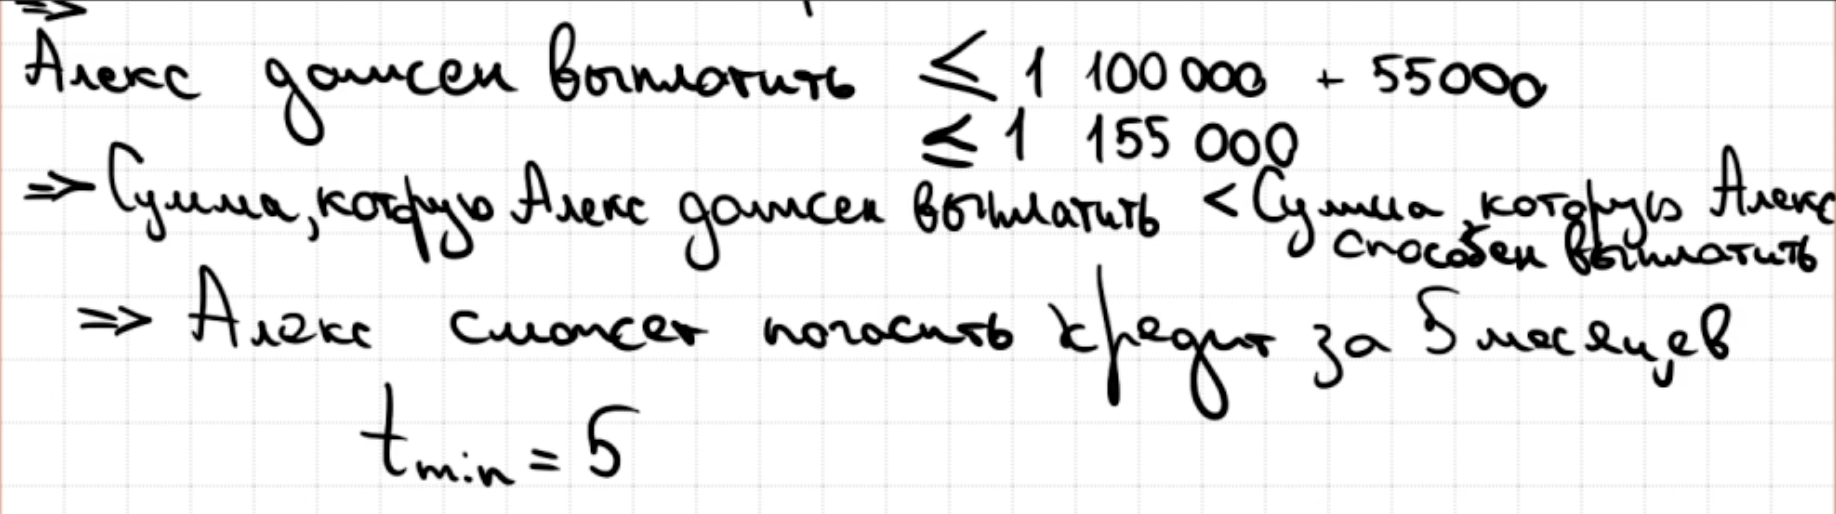 ⇒
Алекс должен выплатить ≤ 1 100 000 + 55000
≤ 1 155 000
⇒ Сумма, которую Алекс должен выплатить < Сумма, которую Алекс
способен выплатить
⇒ Алекс сможет погасить кредит за 5 месяцев
t min = 5